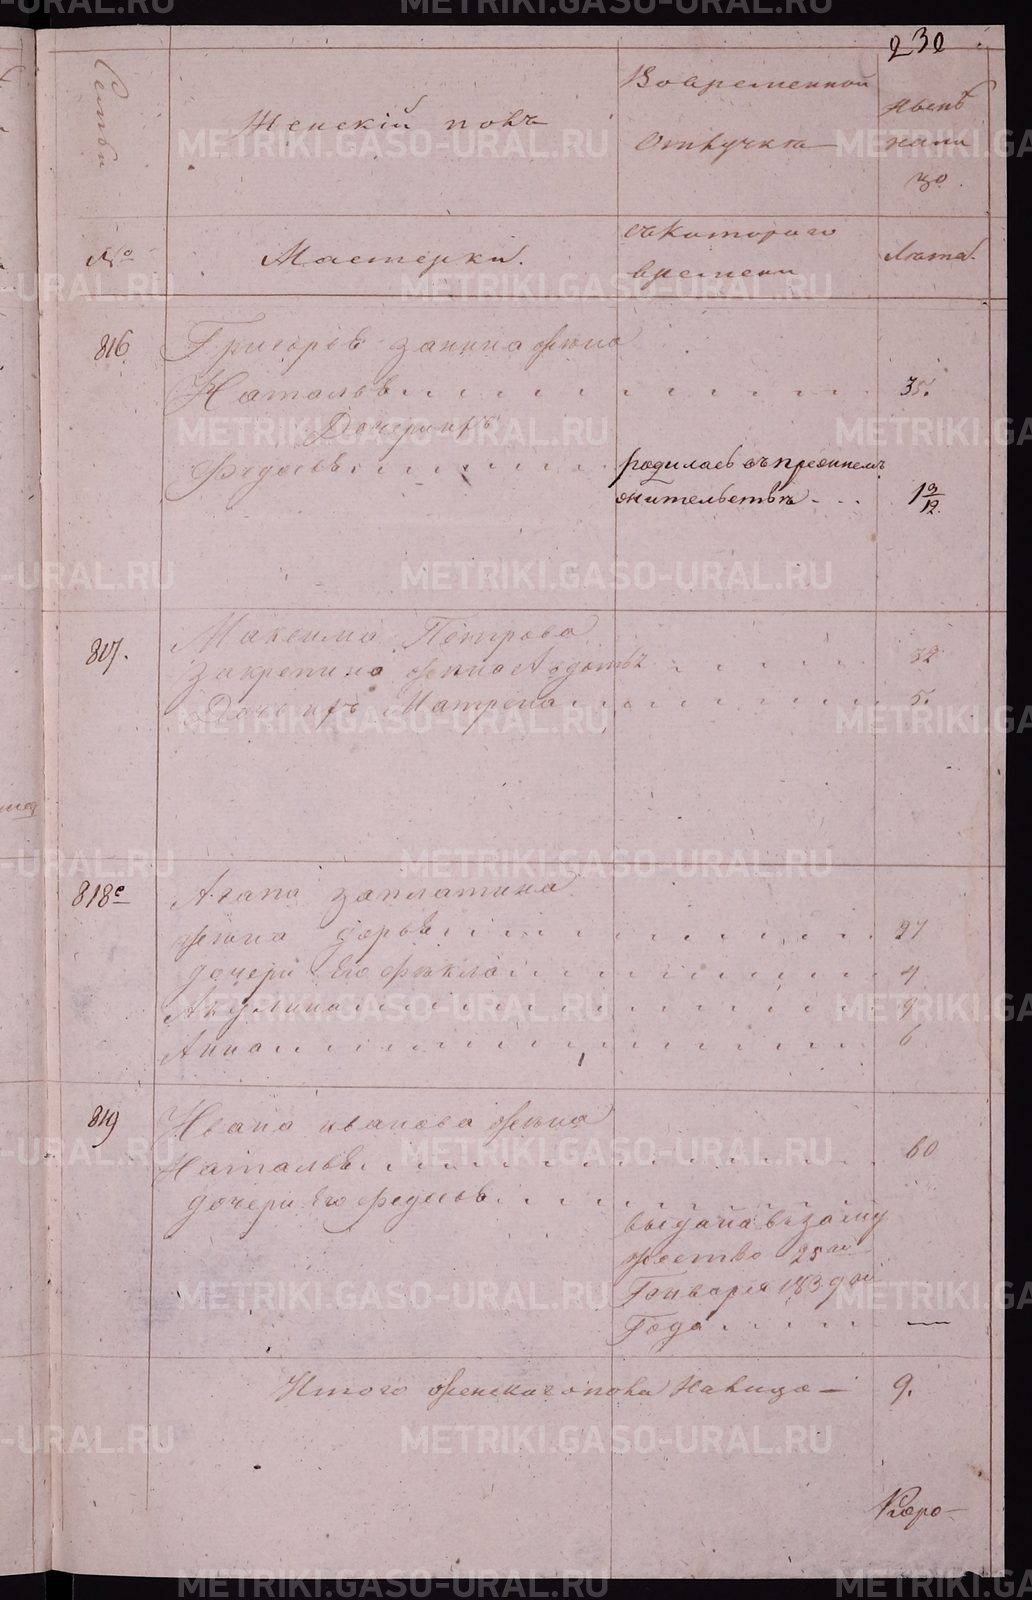 232
Семьи
Женскій полъ
Во временной
отлучкѣ
нынѣ
на ли
цо.
№
Мастерки.
съ котораго
времени
Лѣта.
816
Григорья жена
Наталья 35.
Дочери ихъ
Федосья родилась въ прежнемъ
жительствѣ 1 9/12
817.
Максима Петрова
жена Авдотья 32
Дочь ихъ Матрена 5.
818е
Агапа Заплатина
жена Дарья 27
дочери его Фекла
Акулина 9
Анна 6
819
Ивана Иванова жена
Наталья 60
дочери его Федосья
выдана въ заму
жество 25го
Генваря 1839го
Года —
Итого женскаго пола на лицо — 9.
METRIKI.GASO-URAL.RU